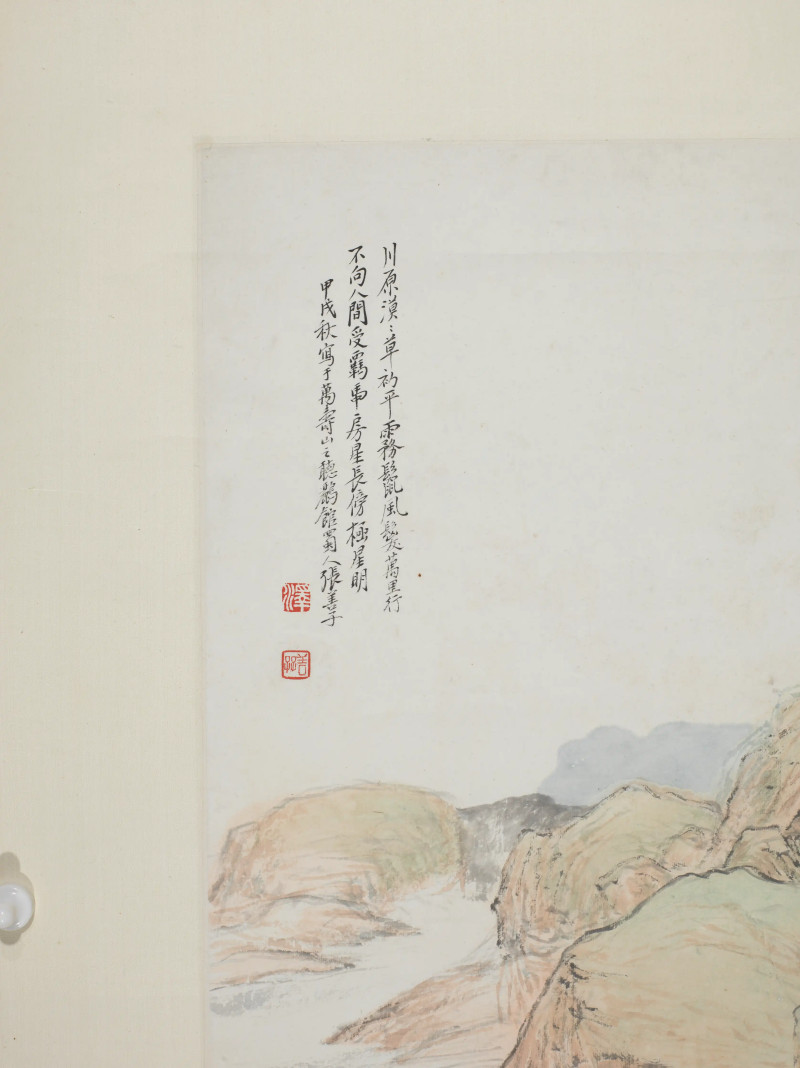 川原漠〻草初平霧鬣風鬃萬里行
不向人間受羈馽房星長傍極星明
甲戌秋寫于萬壽山之聽鸝館蜀人張善子
澤
善孖